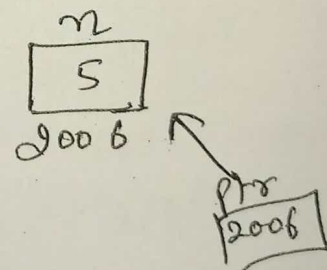 n
5
2006
ptr
2006